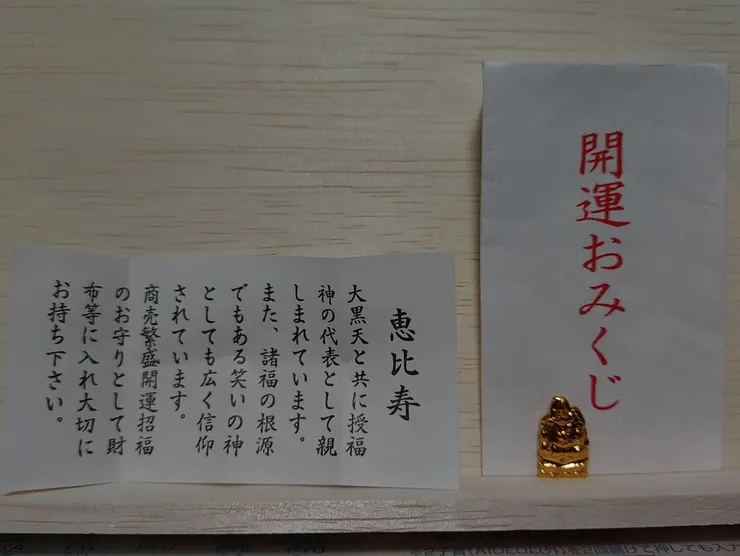 恵比寿
大黒天と共に授福
神の代表として親
しまれています。
また、諸福の根源
でもある笑いの神
としても広く信仰
されています。
商売繁盛開運招福
のお守りとして財
布等に入れ大切に
お持ち下さい。
開運おみくじ